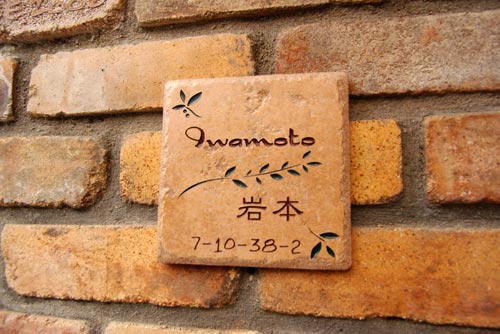 Iwamoto
岩本
7-10-38-2